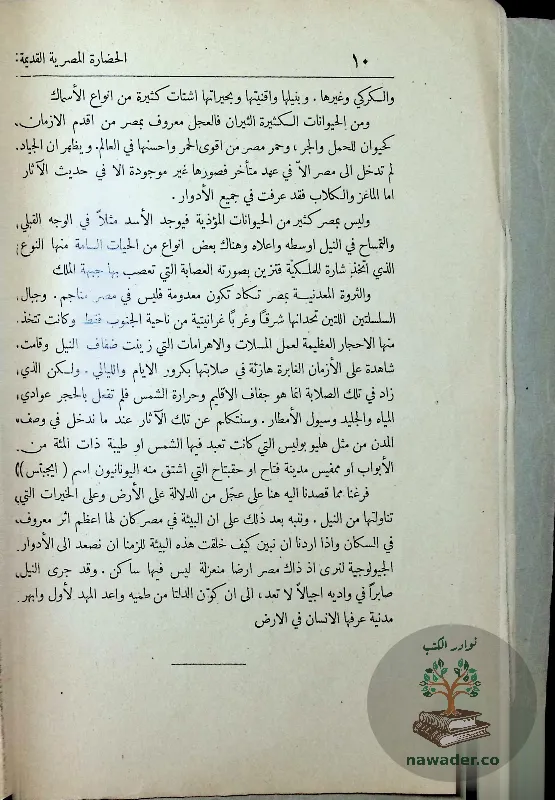 ١٠
الحضارة المصرية القديمة:
والكركي وغيرها . وبنيلها واقنيتها وبحيراتها اشتات كثيرة من انواع الأسماك
ومن الحيوانات الكثيرة الثيران فالعجل معروف بمصر من اقدم الازمان
كحيوان للحمل والجر ، وحمر مصر من اقوى الحمر واحسنها في العالم. ويظهر ان الجياد
لم تدخل الى مصر الاّ في عهد متأخر فصورها غير موجودة الا في حديث الآثار
اما الماعز والكلاب فقد عرفت في جميع الأدوار .
وليس بمصر كثير من الحيوانات المؤذية فيوجد الأسد مثلاً في الوجه القبلي
والتمساح في النيل اوسطه واعلاه وهناك بعض انواع من الحيات السامة منها النوع
الذي اتخذ شارة للملكيّة فتزين بصورته العصابة التي تعصب بها جبهة الملك
والثروة المعدنية بمصر تكاد تكون معدومة فليس في مصر مناجم . وجبال
السلسلتين اللتين تحدانها شرقاً وغرباً غرانيتية من ناحية الجنوب فقط وكانت تتخذ
منها الاحجار العظيمة لعمل المسلات والاهرامات التي زينت ضفاف النيل وقامت
شاهدة على الأزمان الغابرة هازئة في صلابتها بكرور الايام والليالي . ولكن الذي
زاد في تلك الصلابة انما هو جفاف الاقليم وحرارة الشمس فلم تفعل بالحجر عوادي
المياه والجليد وسيول الأمطار . وسنتكلم عن تلك الآثار عند ما ندخل في وصف
المدن من مثل هليو بوليس التي كانت تعبد فيها الشمس او طيبة ذات المئة من
الأبواب او ممفيس مدينة فتاح او حقبتاح التي اشتق منه اليونانيون اسم ( ايجبتس))
فرغنا مما قصدنا اليه هنا على عجَل من الدلالة على الأرض وعلى الخيرات التي
تناولتها من النيل . وننبه بعد ذلك على ان البيئة في مصر كان لها اعظم اثر معروف
في السكان واذا اردنا ان نبين كيف خلقت هذه البيئة للزمنا ان نصعد الى الأدوار
الجيولوجية لنرى اذ ذاك مصر ارضا منعزلة ليس فيها ساكن . وقد جرى النيل
صابراً في واديه اجيالاً لا تعد، الى ان كوّن الدلتا من طميه واعد المهد لأول وابهر
مدنية عرفها الانسان في الارض
نوادر الكتب
nawader.co